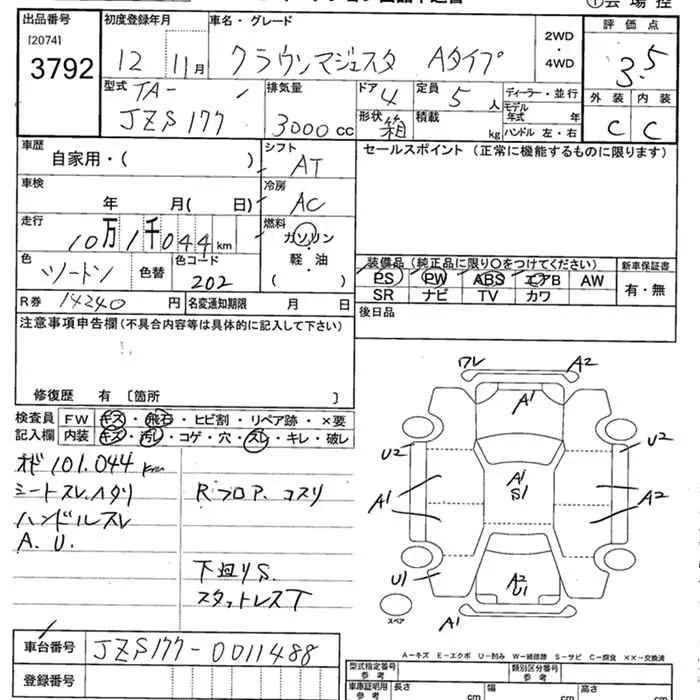 出品番号 初度登録年月 車名・グレード 2WD 評価点
[2074] 3792 12 11月 クラウンマジェスタ Aタイプ ・ 4WD 3.5
型式 TA- 排気量 ドア 4 定員 5 人 ディーラー・並行 外装 内装
JZS177 3000cc 形状 箱 積載 kg モデル年式 年 ハンドル 左・右 C C
車歴 自家用・( ) シフト AT セールスポイント (正常に機能するものに限ります)
車検 年 月( 日) 冷房 AC
走行 10万1千044km 燃料 ガソリン
色 ツートン 色替 色コード 202 軽・油 ( )
装備品(純正品に限り○をつけてください) 新車保証書
PS PW ABS エアB AW 有・無
SR ナビ TV カワ
R券 14240円 名変通知期限 月 日 後日品
注意事項申告欄(不具合内容等は具体的に記入して下さい)
修復歴 有 〔箇所 〕
検査員 FW キズ・飛石・ヒビ割・リペア跡・×要
記入欄 内装 キズ・汚レ・コゲ・穴・スレ・キレ・破レ
オド101.044km
シートスレ、ヘタリ Rフロア、コスリ
ハンドルスレ
A.U.
下廻りS.
スタットレスT
ワレ A2
A1
U2 U2
A1 A1 S1 A2
U1 A2 U1
スペア A1
A-キズ E-エクボ U-凹み W-補修跡 S-サビ C-腐食 ××-交換済
車台番号 JZS177-0011488
登録番号
型式指定番号 参考 類別区分番号 参考
車庫証明用 参考 長さ cm 幅 cm 高さ cm